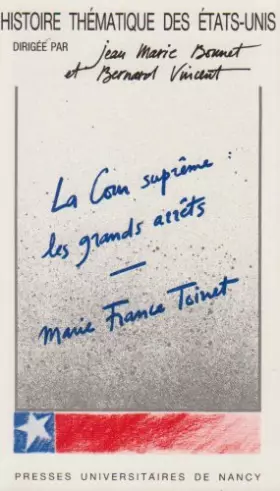 HISTOIRE THÉMATIQUE DES ÉTATS-UNIS
DIRIGÉE PAR Jean Marie Bonnet
et Bernard Vincent
La Cour suprême :
les grands arrêts
—
Marie France Toinet
PRESSES UNIVERSITAIRES DE NANCY